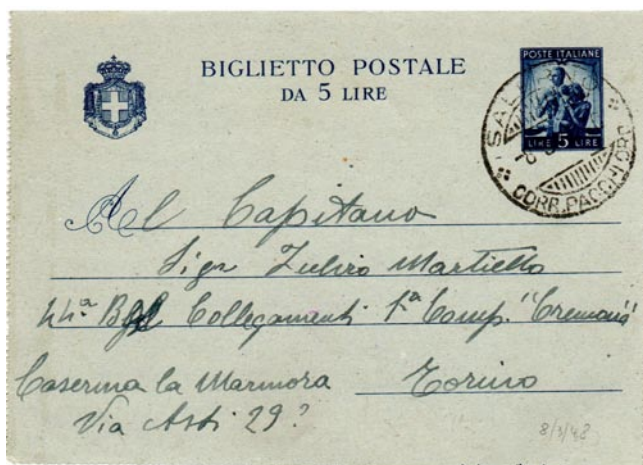 BIGLIETTO POSTALE
DA 5 LIRE
POSTE ITALIANE
LIRE 5 LIRE
CORR. PACCHI ORD
Al Capitano
Sigr Martiello
44ª Collegamenti 1ª Comp. "Cremona"
Caserma la Marmora Torino
Via Asti 29?
8/3/48